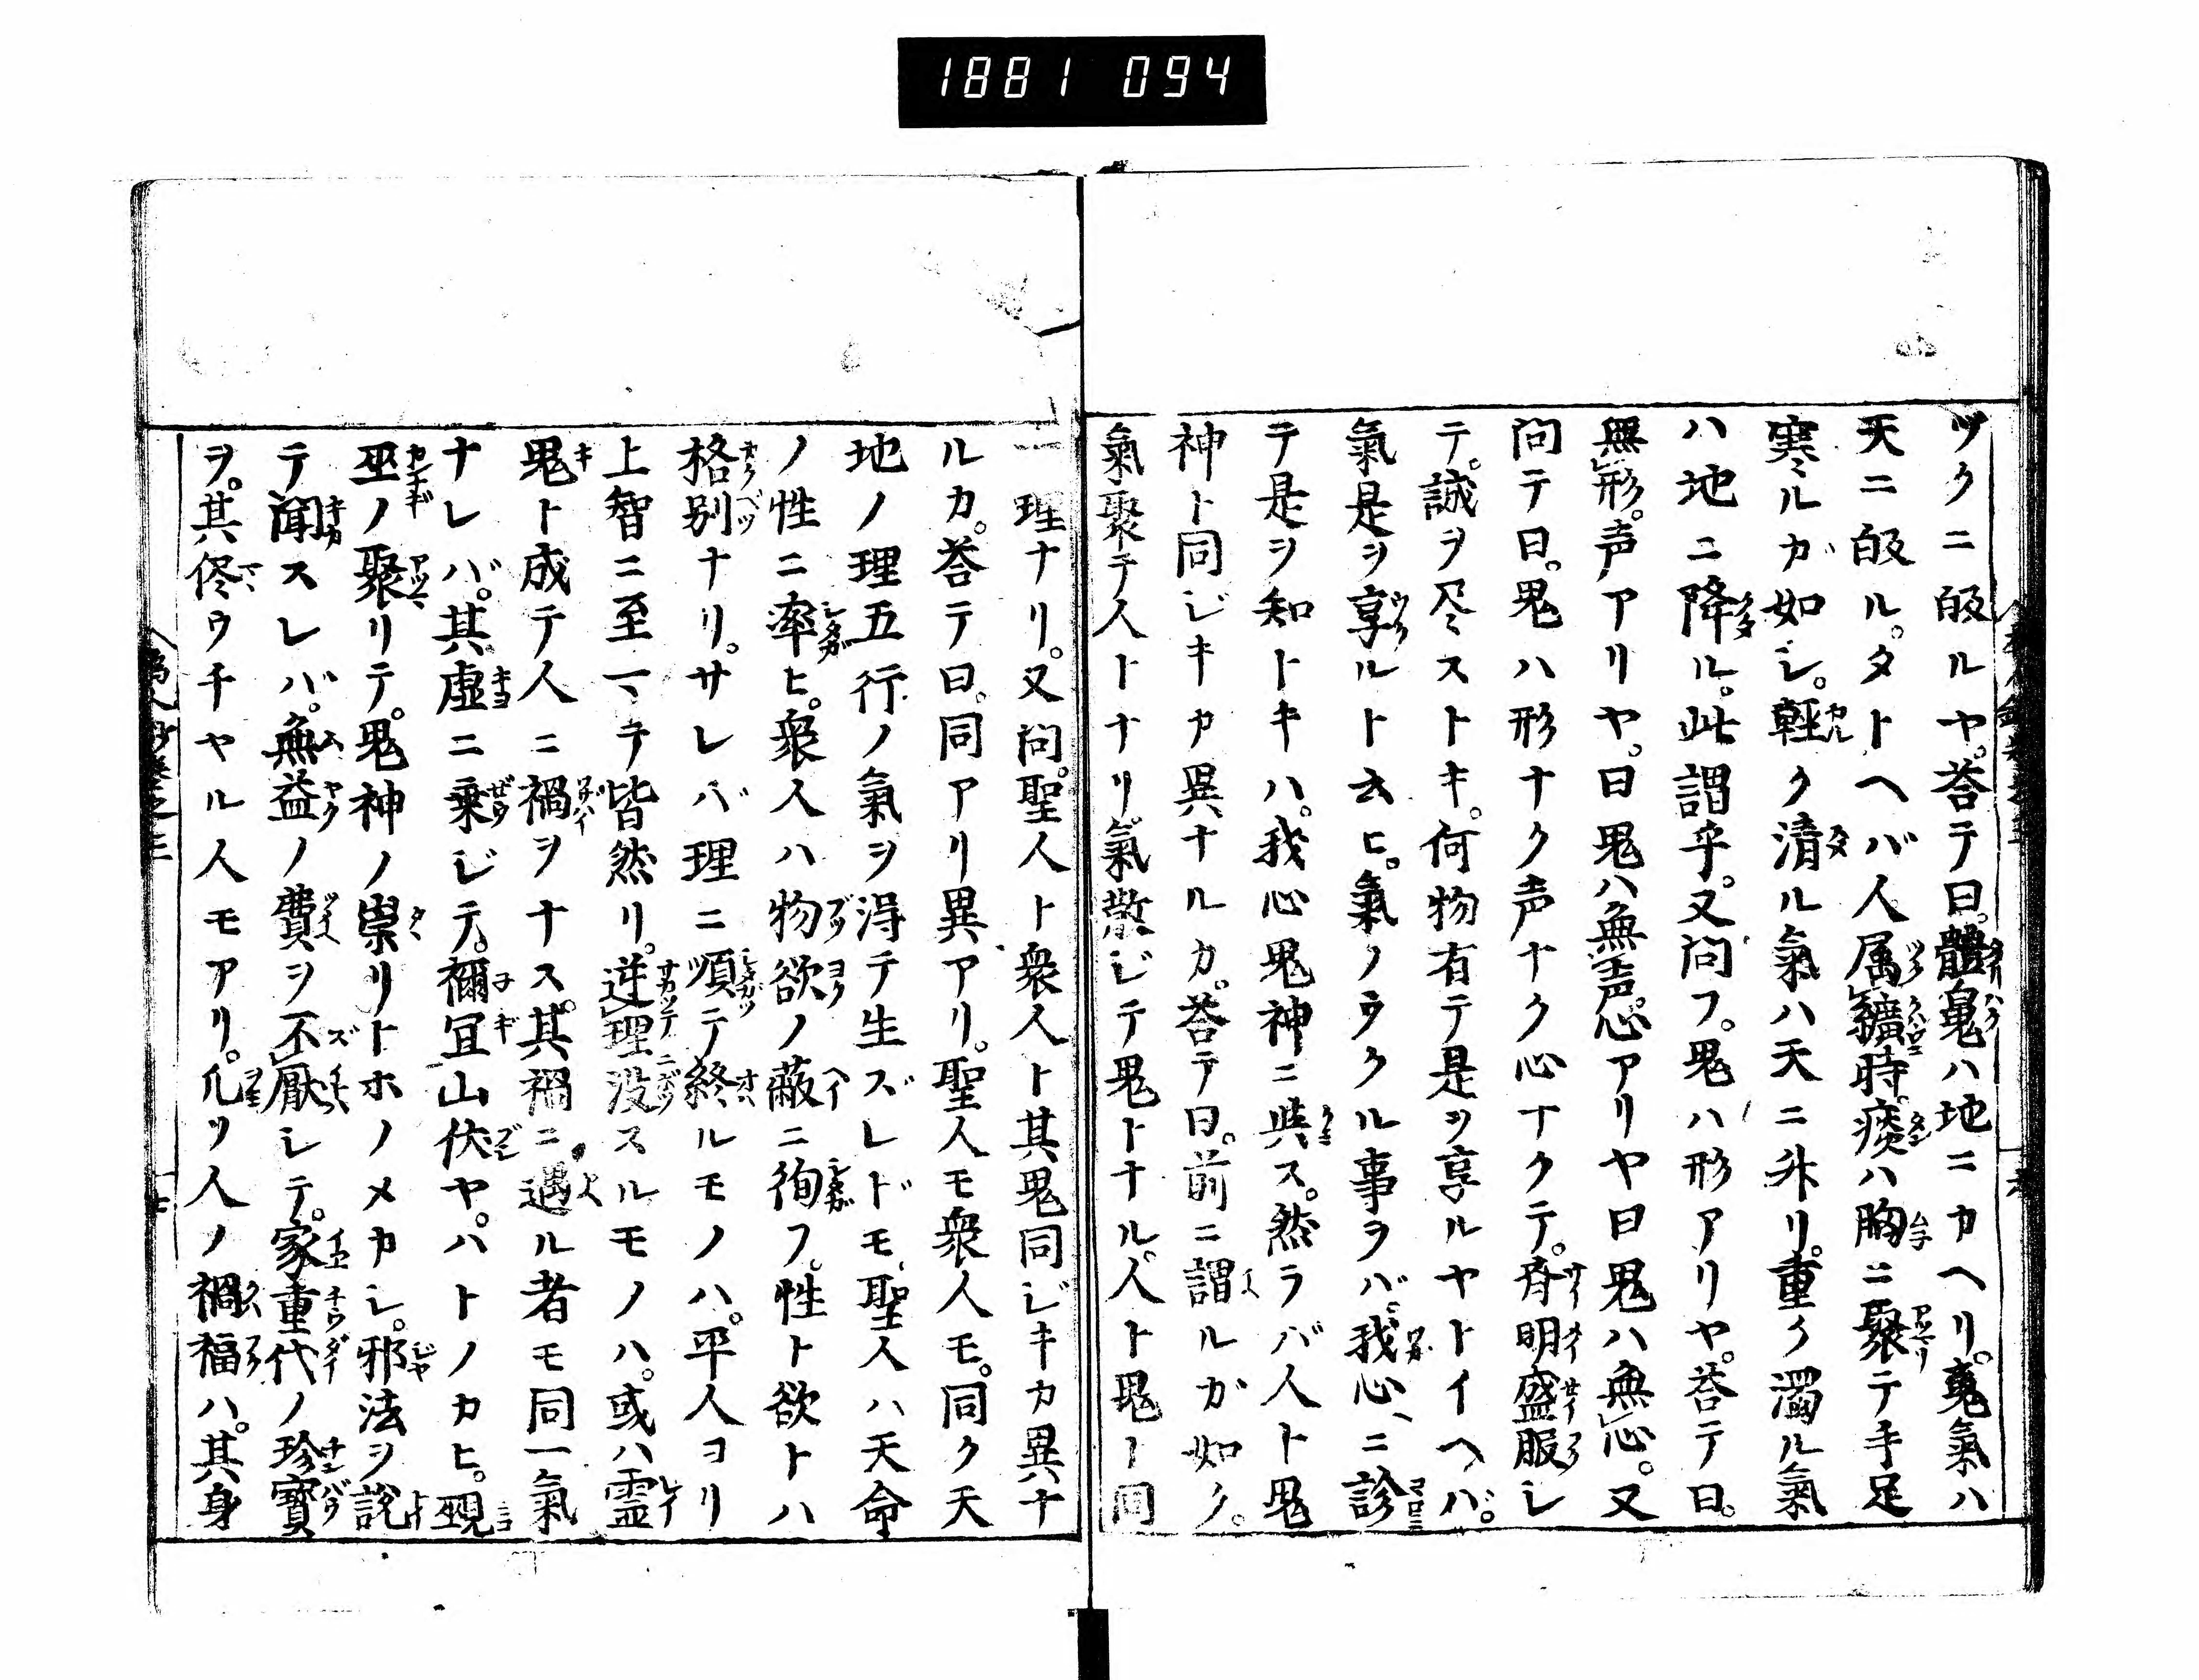 1881 094
ツクニ皈ルヤ。荅テ曰。體魄ハ地ニカヘリ。䰟氣ハ
天ニ皈ル。タトヘバ人属纊時。痰ハ胸ニ聚テ手足
寒ルガ如シ。軽ク清ル氣ハ天ニ外リ。重ク濁ル氣
ハ地ニ降ル。此謂乎。又問フ。鬼ハ形アリヤ。荅テ曰。
無形。声アリヤ。曰鬼ハ無声。心アリヤ曰鬼ハ無心。又
問テ曰。鬼ハ形ナク声ナク心ナクテ。斉明盛服シ
テ。誠ヲ尽ストキ。何物有テ是ヲ享ルヤトイヘバ。
氣是ヲ享ルト云ヒ。氣ノウクル事ヲバ。我心ニ診
テ是ヲ知トキハ。我心鬼神ニ具ス。然ラバ人ト鬼
神ト同ジキカ異ナルカ。荅テ曰。前ニ謂ルカ如ク。
氣聚テ人トナリ。氣散ジテ鬼トナル。人ト鬼ト同
一理ナリ。又問。聖人ト衆人ト其鬼同ジキカ異ナ
ルカ。荅テ曰。同アリ異アリ。聖人モ衆人モ。同ク天
地ノ理五行ノ氣ヲ得テ生ズレドモ。聖人ハ天命
ノ性ニ率ヒ。衆人ハ物欲ノ蔽ニ徇フ。性ト欲トハ
格別ナリ。サレバ理ニ順テ終ルモノハ。平人ヨリ
上智ニ至マテ皆然リ。逆理没スルモノハ。或ハ霊
鬼ト成テ人ニ禍ヲナス。其禍ニ遇ル者モ同一氣
ナレバ。其虚ニ乗ジテ。禰宜山伏ヤ。ハトノカヒ。覡
巫ノ聚リテ。鬼神ノ祟リトホノメカシ。邪法ヲ説
テ聞スレバ。無益ノ費ヲ不厭シテ。家重代ノ珍寳
ヲ。其侭ウチヤル人モアリ。凡ソ人ノ禍福ハ。其身